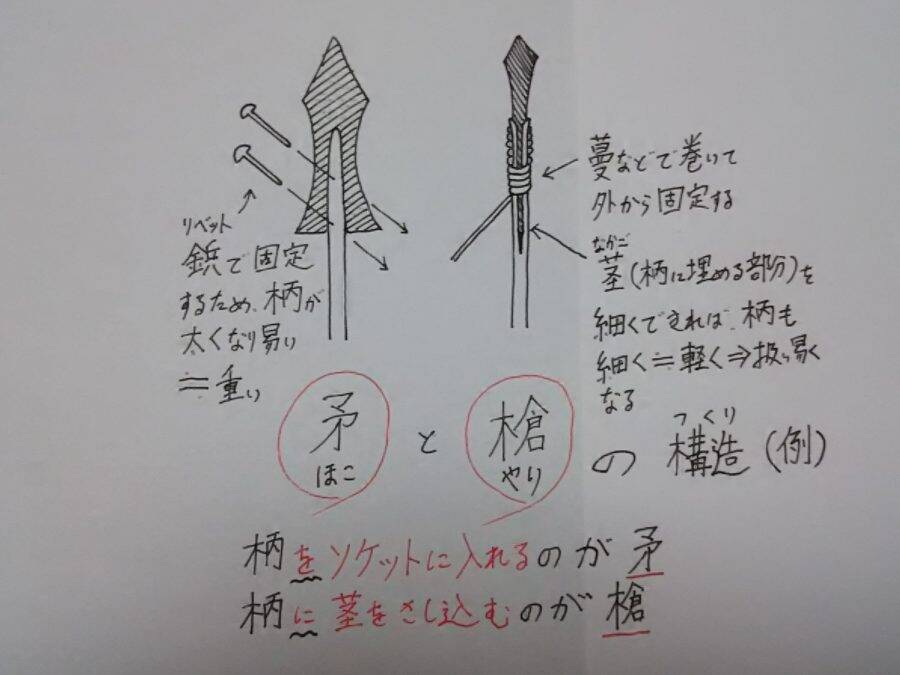 リベット
鋲で固定
するため、柄が
太くなり易い
≒重い
蔓などで巻いて
外から固定する
なかご
茎(柄に埋める部分)を
細くできれば、柄も
細く≒軽く⇒扱い易く
なる
矛と槍の構造(例)
ほこ
やり
つくり
柄をソケットに入れるのが矛
柄に茎をさし込むのが槍